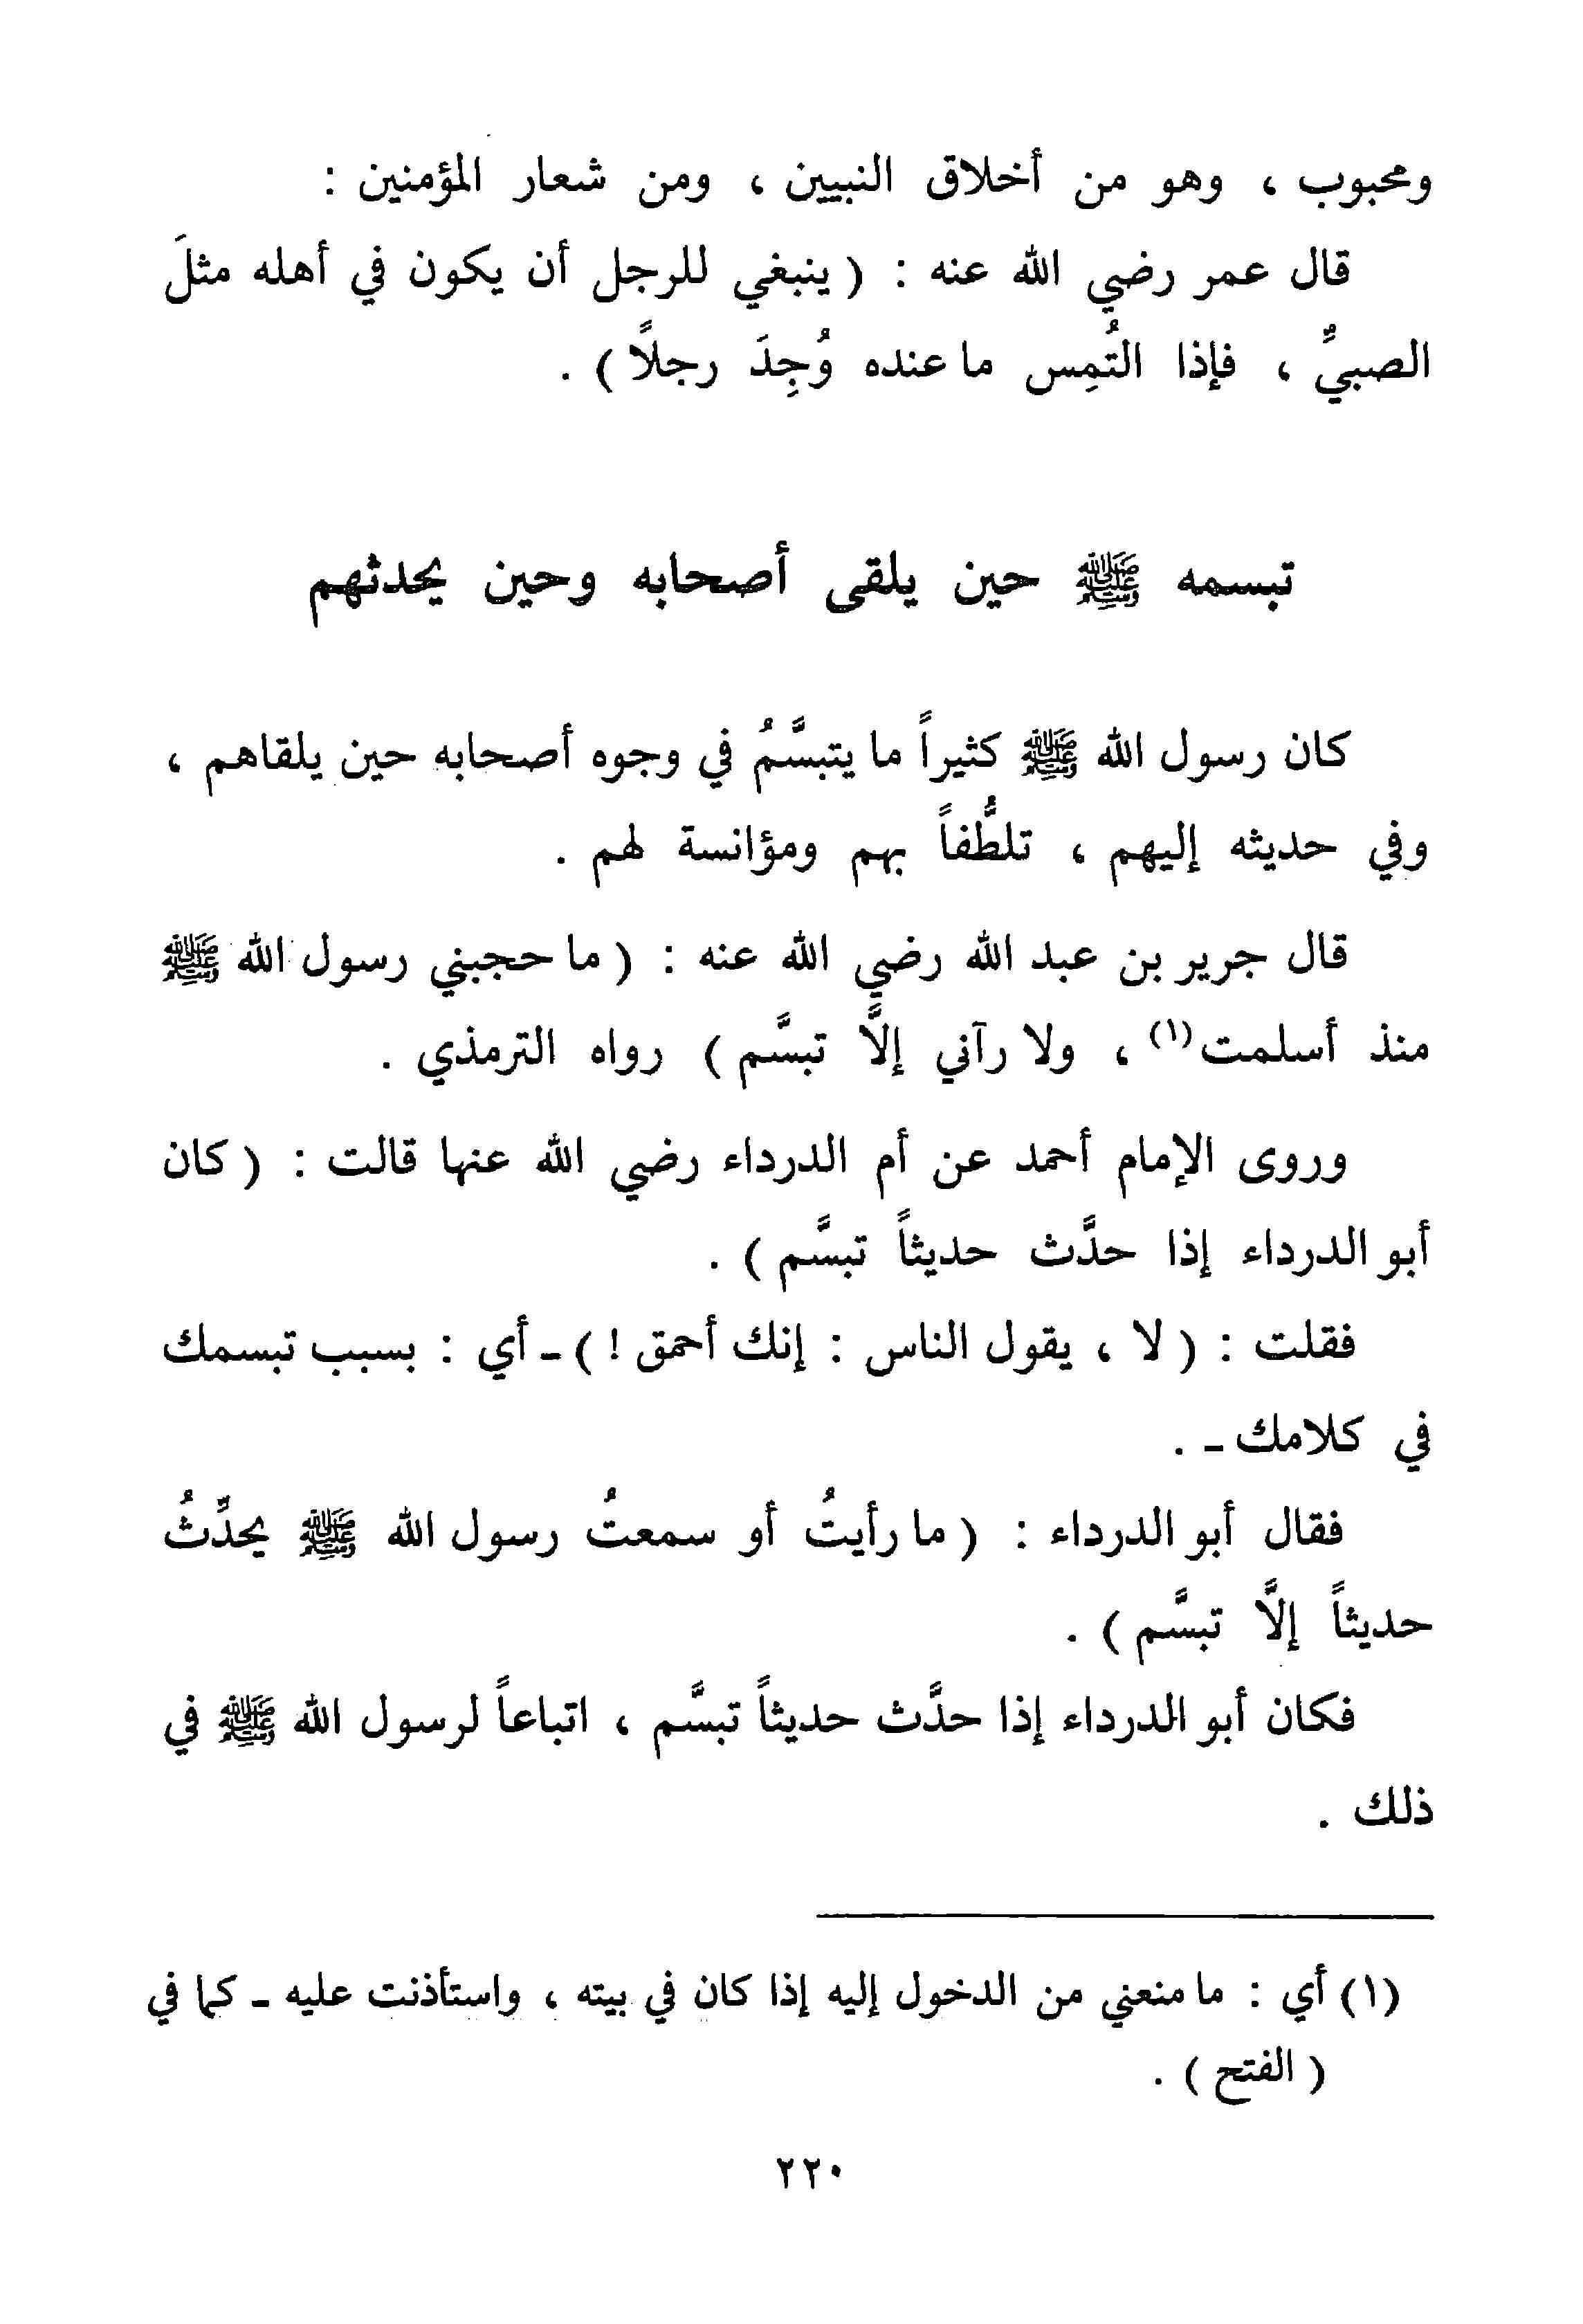 ومحبوب ، وهو من أخلاق النبيين ، ومن شعار المؤمنين :
قال عمر رضي الله عنه : ( ينبغي للرجل أن يكون في أهله مثلَ
الصبيِّ ، فإذا التُمِس ما عنده وُجِدَ رجلاً ) .
تبسمه ﷺ حين يلقى أصحابه وحين يحدثهم
كان رسول الله ﷺ كثيراً ما يتبسَّمُ في وجوه أصحابه حين يلقاهم ،
وفي حديثه إليهم ، تلطُّفاً بهم ومؤانسة لهم .
قال جرير بن عبد الله رضي الله عنه : ( ما حجبني رسول الله ﷺ
منذ أسلمت(١) ، ولا رآني إلاَّ تبسَّم ) رواه الترمذي .
وروى الإمام أحمد عن أم الدرداء رضي الله عنها قالت : ( كان
أبو الدرداء إذا حدَّث حديثاً تبسَّم ) .
فقلت : ( لا ، يقول الناس : إنك أحمق ! ) ـ أي : بسبب تبسمك
في كلامك ـ .
فقال أبو الدرداء : ( ما رأيتُ أو سمعتُ رسول الله ﷺ يحدِّثُ
حديثاً إلاَّ تبسَّم ) .
فكان أبو الدرداء إذا حدَّث حديثاً تبسَّم ، اتباعاً لرسول الله ﷺ في
ذلك .
(١) أي : ما منعني من الدخول إليه إذا كان في بيته ، واستأذنت عليه ـ كما في
( الفتح ) .
٢٢٠